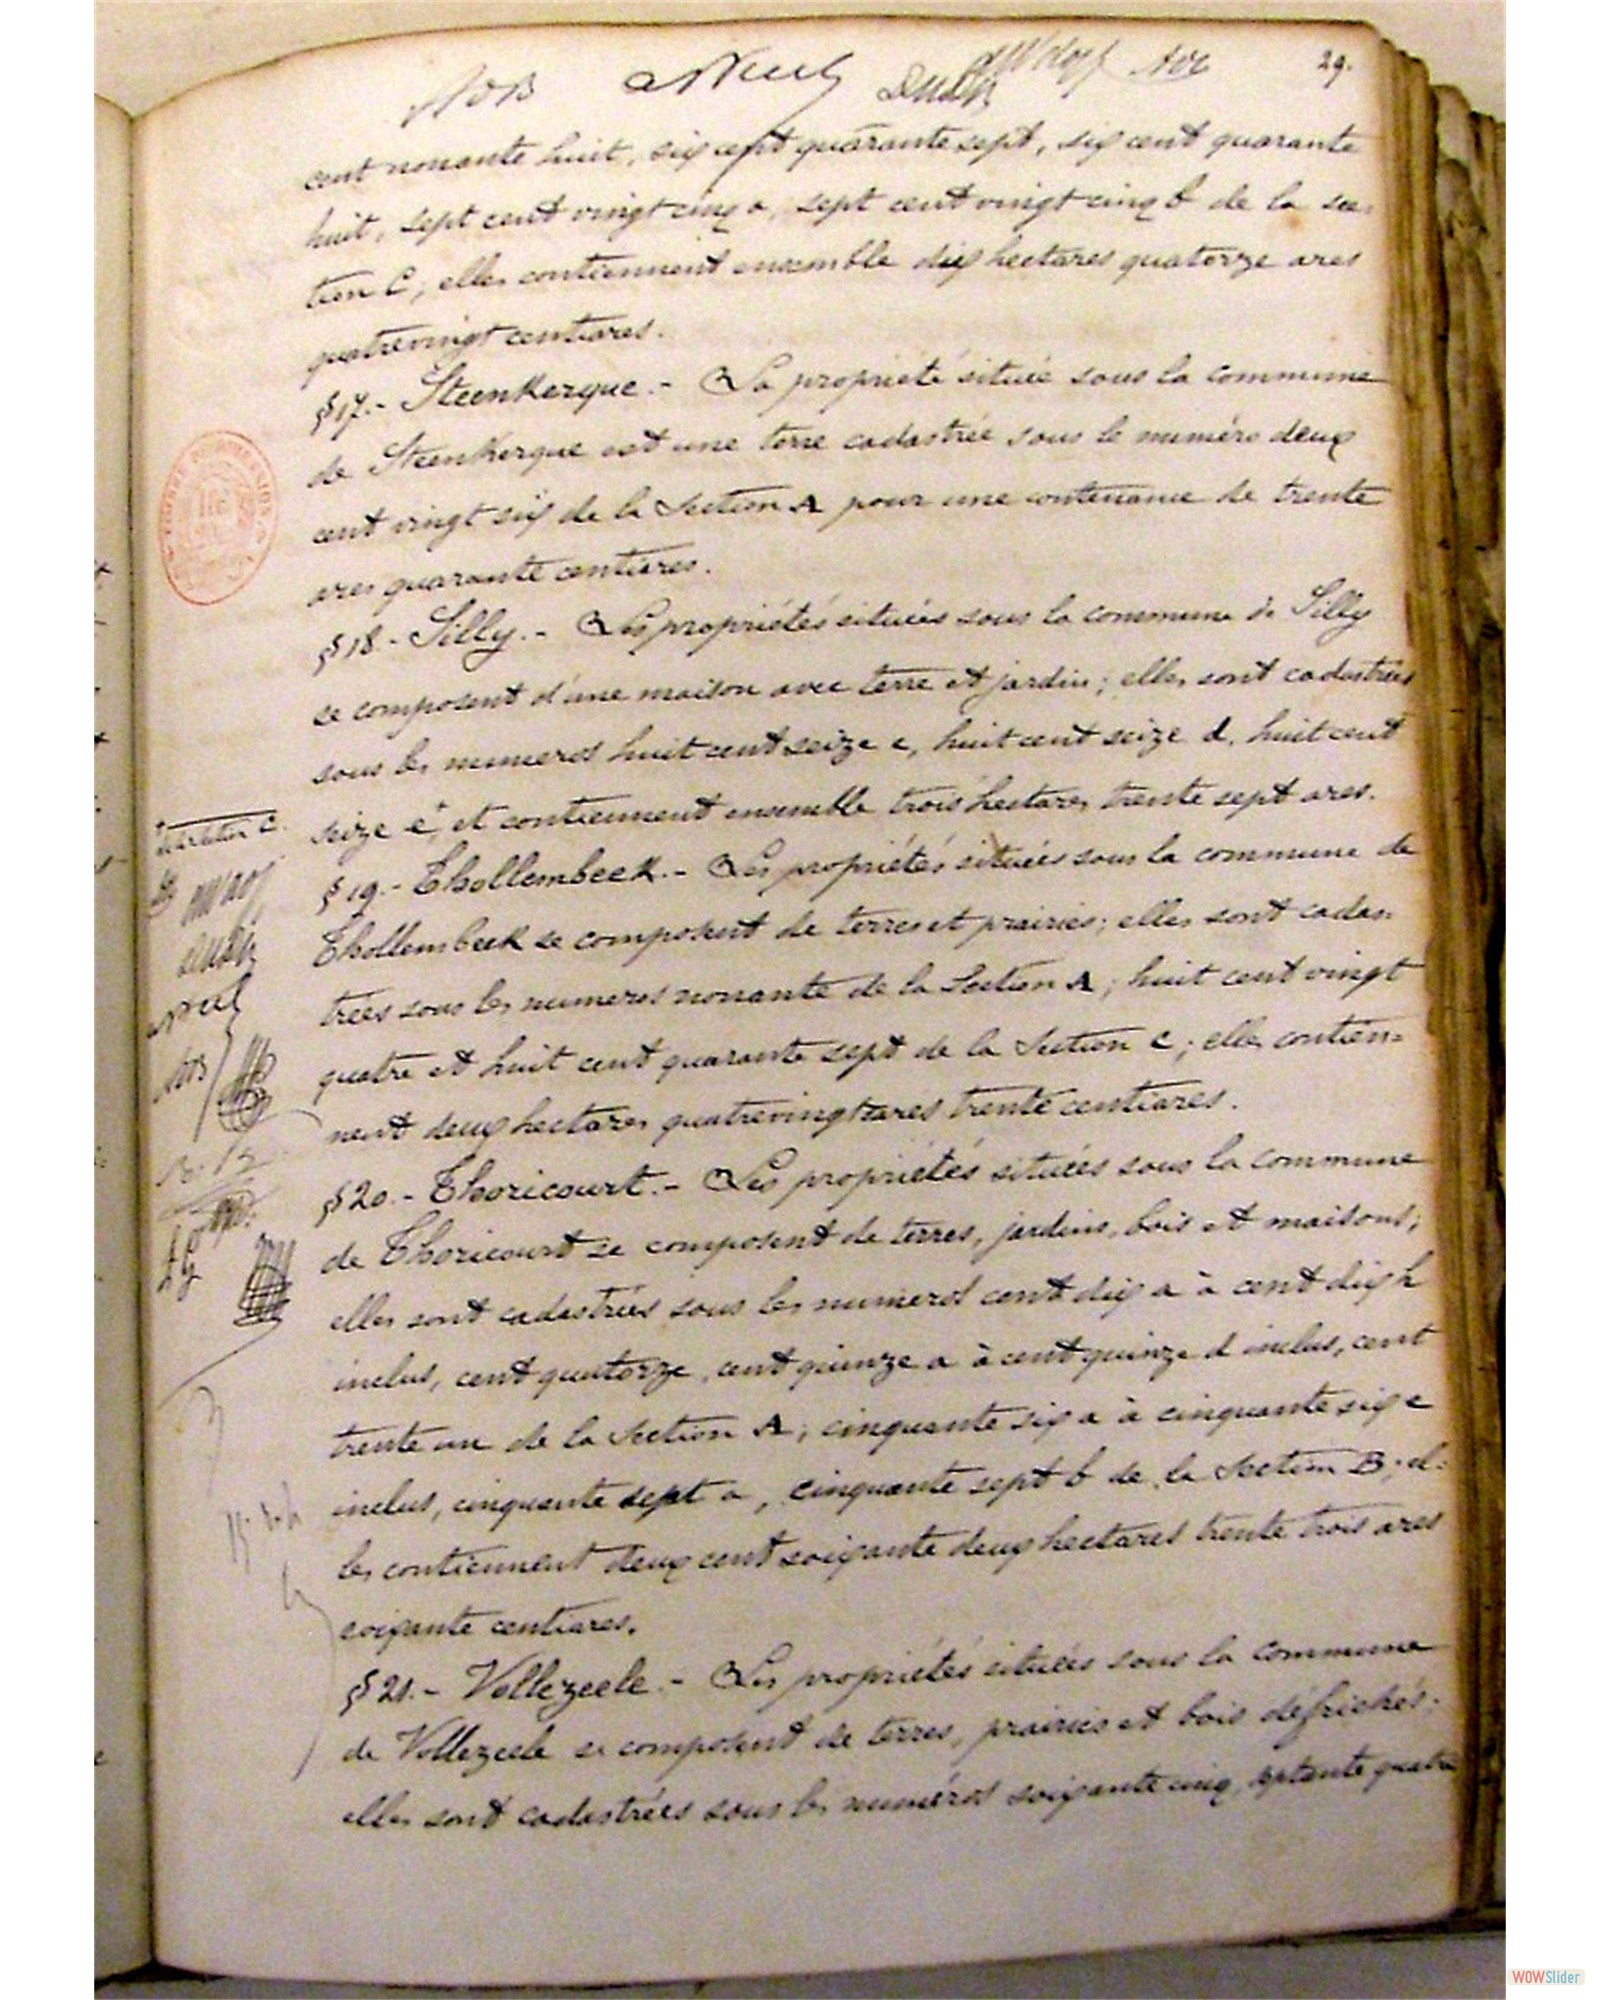 29.
cent nonante huit, six cent quarante sept, six cent quarante
huit, sept cent vingt cinq a, sept cent vingt cinq b de la sec-
tion C, elles contiennent ensemble dix hectares quatorze ares
quatrevingt centiares.
§17.- Steenkerque.- La propriété située sous la commune
de Steenkerque est une terre cadastrée sous le numéro deux
cent vingt six de la Section A pour une contenance de trente
ares quarante centiares.
§18.- Silly.- Les propriétés situées sous la commune de Silly
se composent d'une maison avec terre et jardin; elles sont cadastrées
sous les numeros huit cent seize c, huit cent seize d, huit cent
seize e, et contiennent ensemble trois hectares trente sept ares.
§19.- Thollembeek.- Les propriétés situées sous la commune de
Thollembeek se composent de terres et prairies; elles sont cadas-
trées sous les numeros nonante de la Section A; huit cent vingt
quatre et huit cent quarante sept de la Section C; elles contien=
nent deux hectares quatrevingt ares trente centiares.
§20.- Thoricourt.- Les propriétés situées sous la commune
de Thoricourt se composent de terres, jardins, bois et maisons;
elles sont cadastrées sous les numeros cent dix a à cent dix h
inclus, cent quatorze, cent quinze a à cent quinze d inclus, cent
trente un de la Section A; cinquante six a à cinquante six e
inclus, cinquante sept a, cinquante sept b de la Section B; el=
les contiennent deux cent soixante deux hectares trente trois ares
soixante centiares.
§21.- Vollezeele.- Les propriétés situées sous la commune
de Vollezeele se composent de terres, prairies et bois défrichés;
elles sont cadastrées sous les numéros soixante cinq, septante quatre
WOWSlider